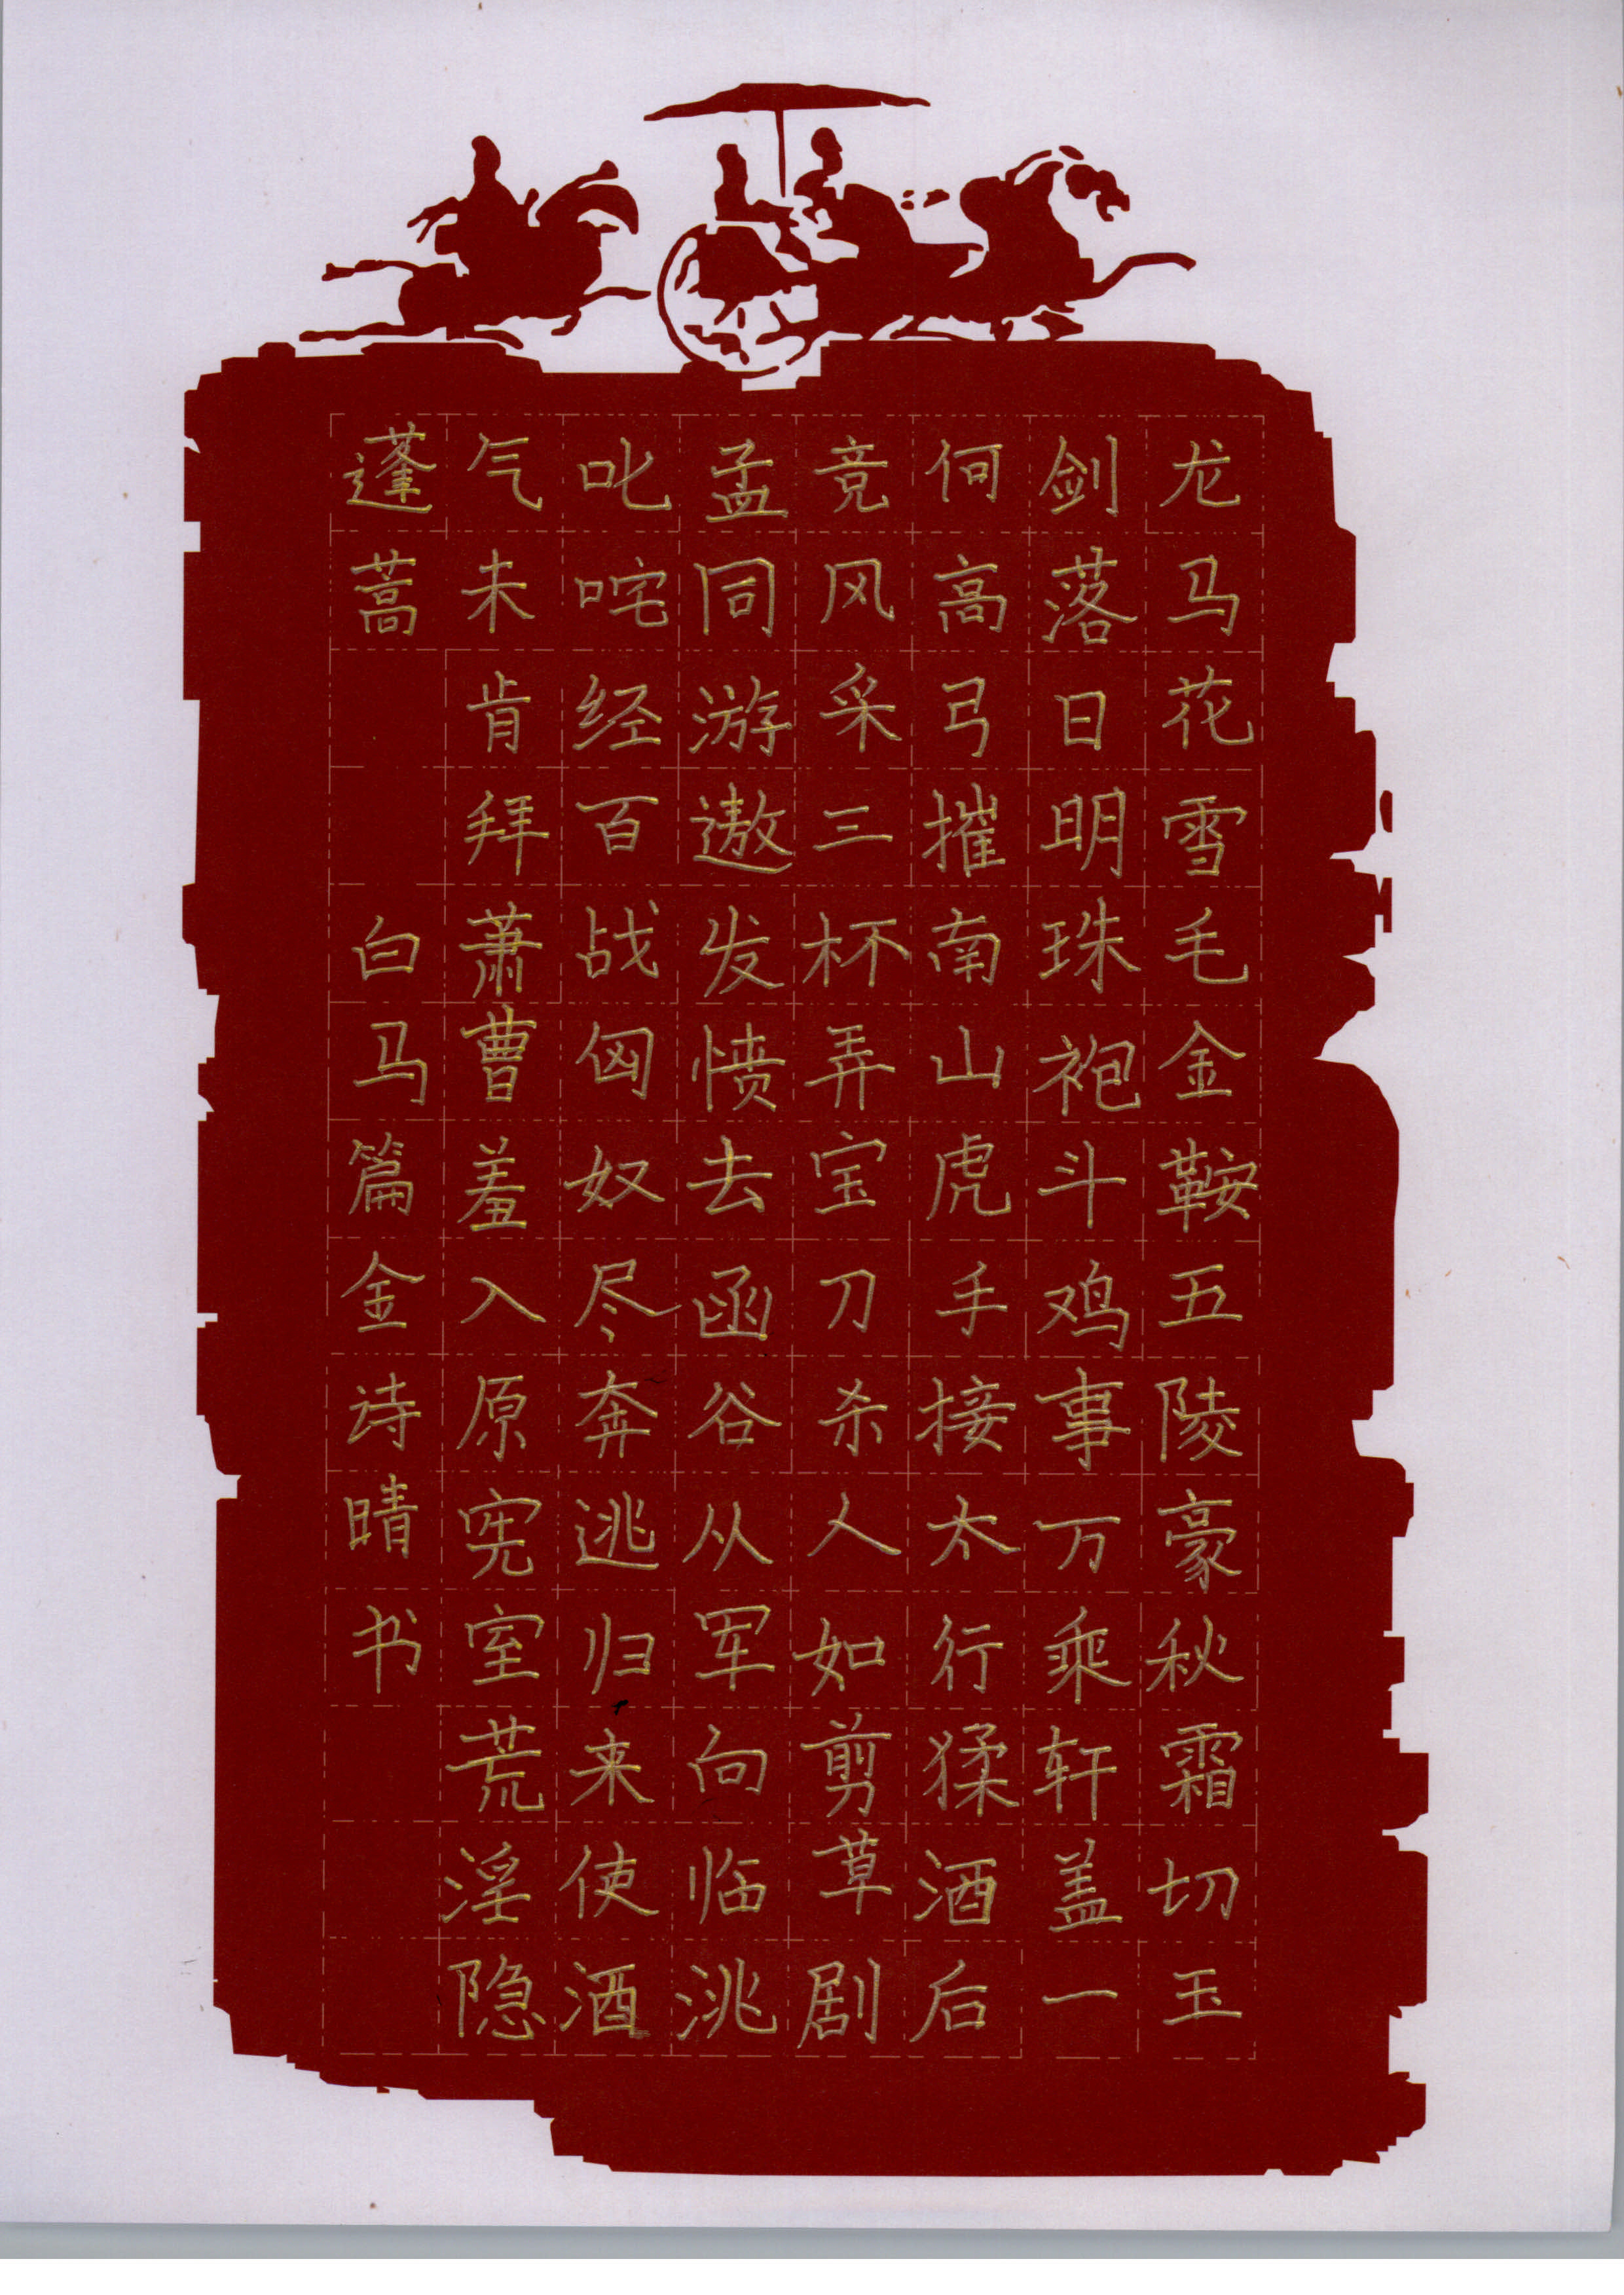 龙马花雪毛金鞍五陵豪秋霜切玉
剑落日明珠袍斗鸡事万乘轩盖一
何高弓摧南山虎手接太行猱酒后
竞风采三杯弄宝刀杀人如剪草剧
孟同游遨发愤去函谷从军向临洮
叱咤经百战匈奴尽奔逃归来使酒
气未肯拜萧曹羞入原宪室荒淫隐
蓬蒿 白马篇金诗晴书